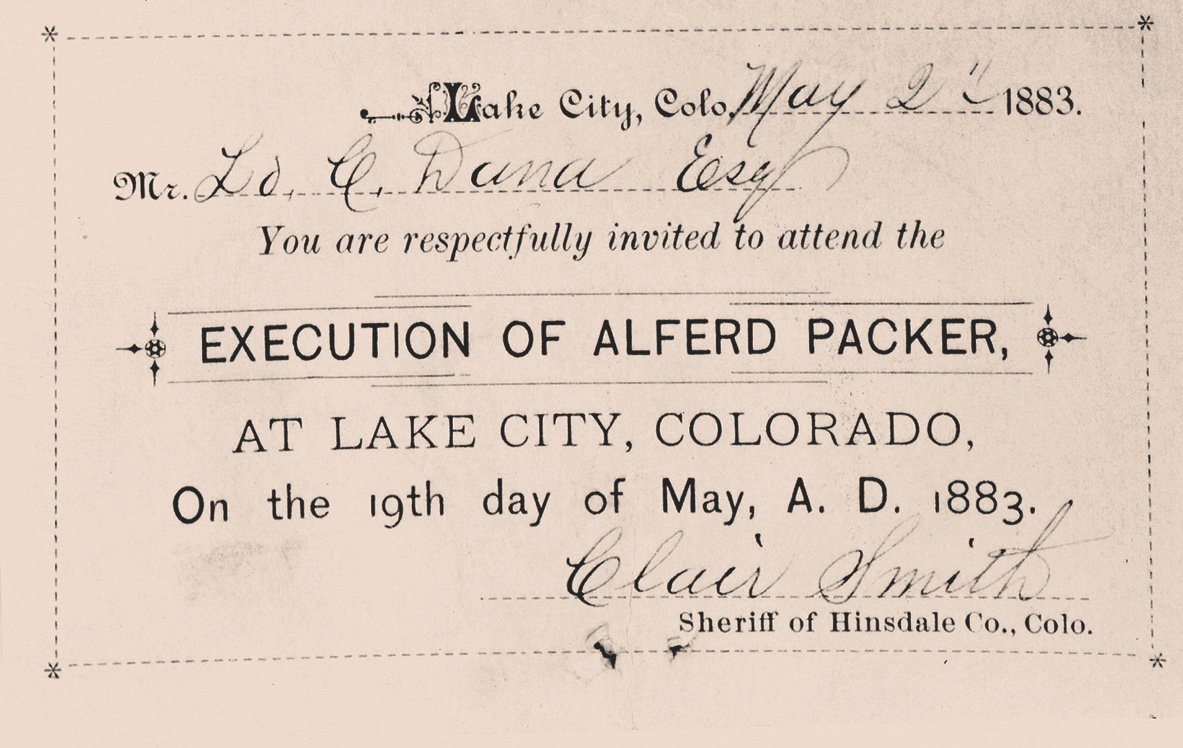 Lake City, Colo, May 2" 1883.
Mr. Ld. C. Dana Esq
You are respectfully invited to attend the
EXECUTION OF ALFERD PACKER,
AT LAKE CITY, COLORADO,
On the 19th day of May, A. D. 1883.
Clair Smith
Sheriff of Hinsdale Co., Colo.